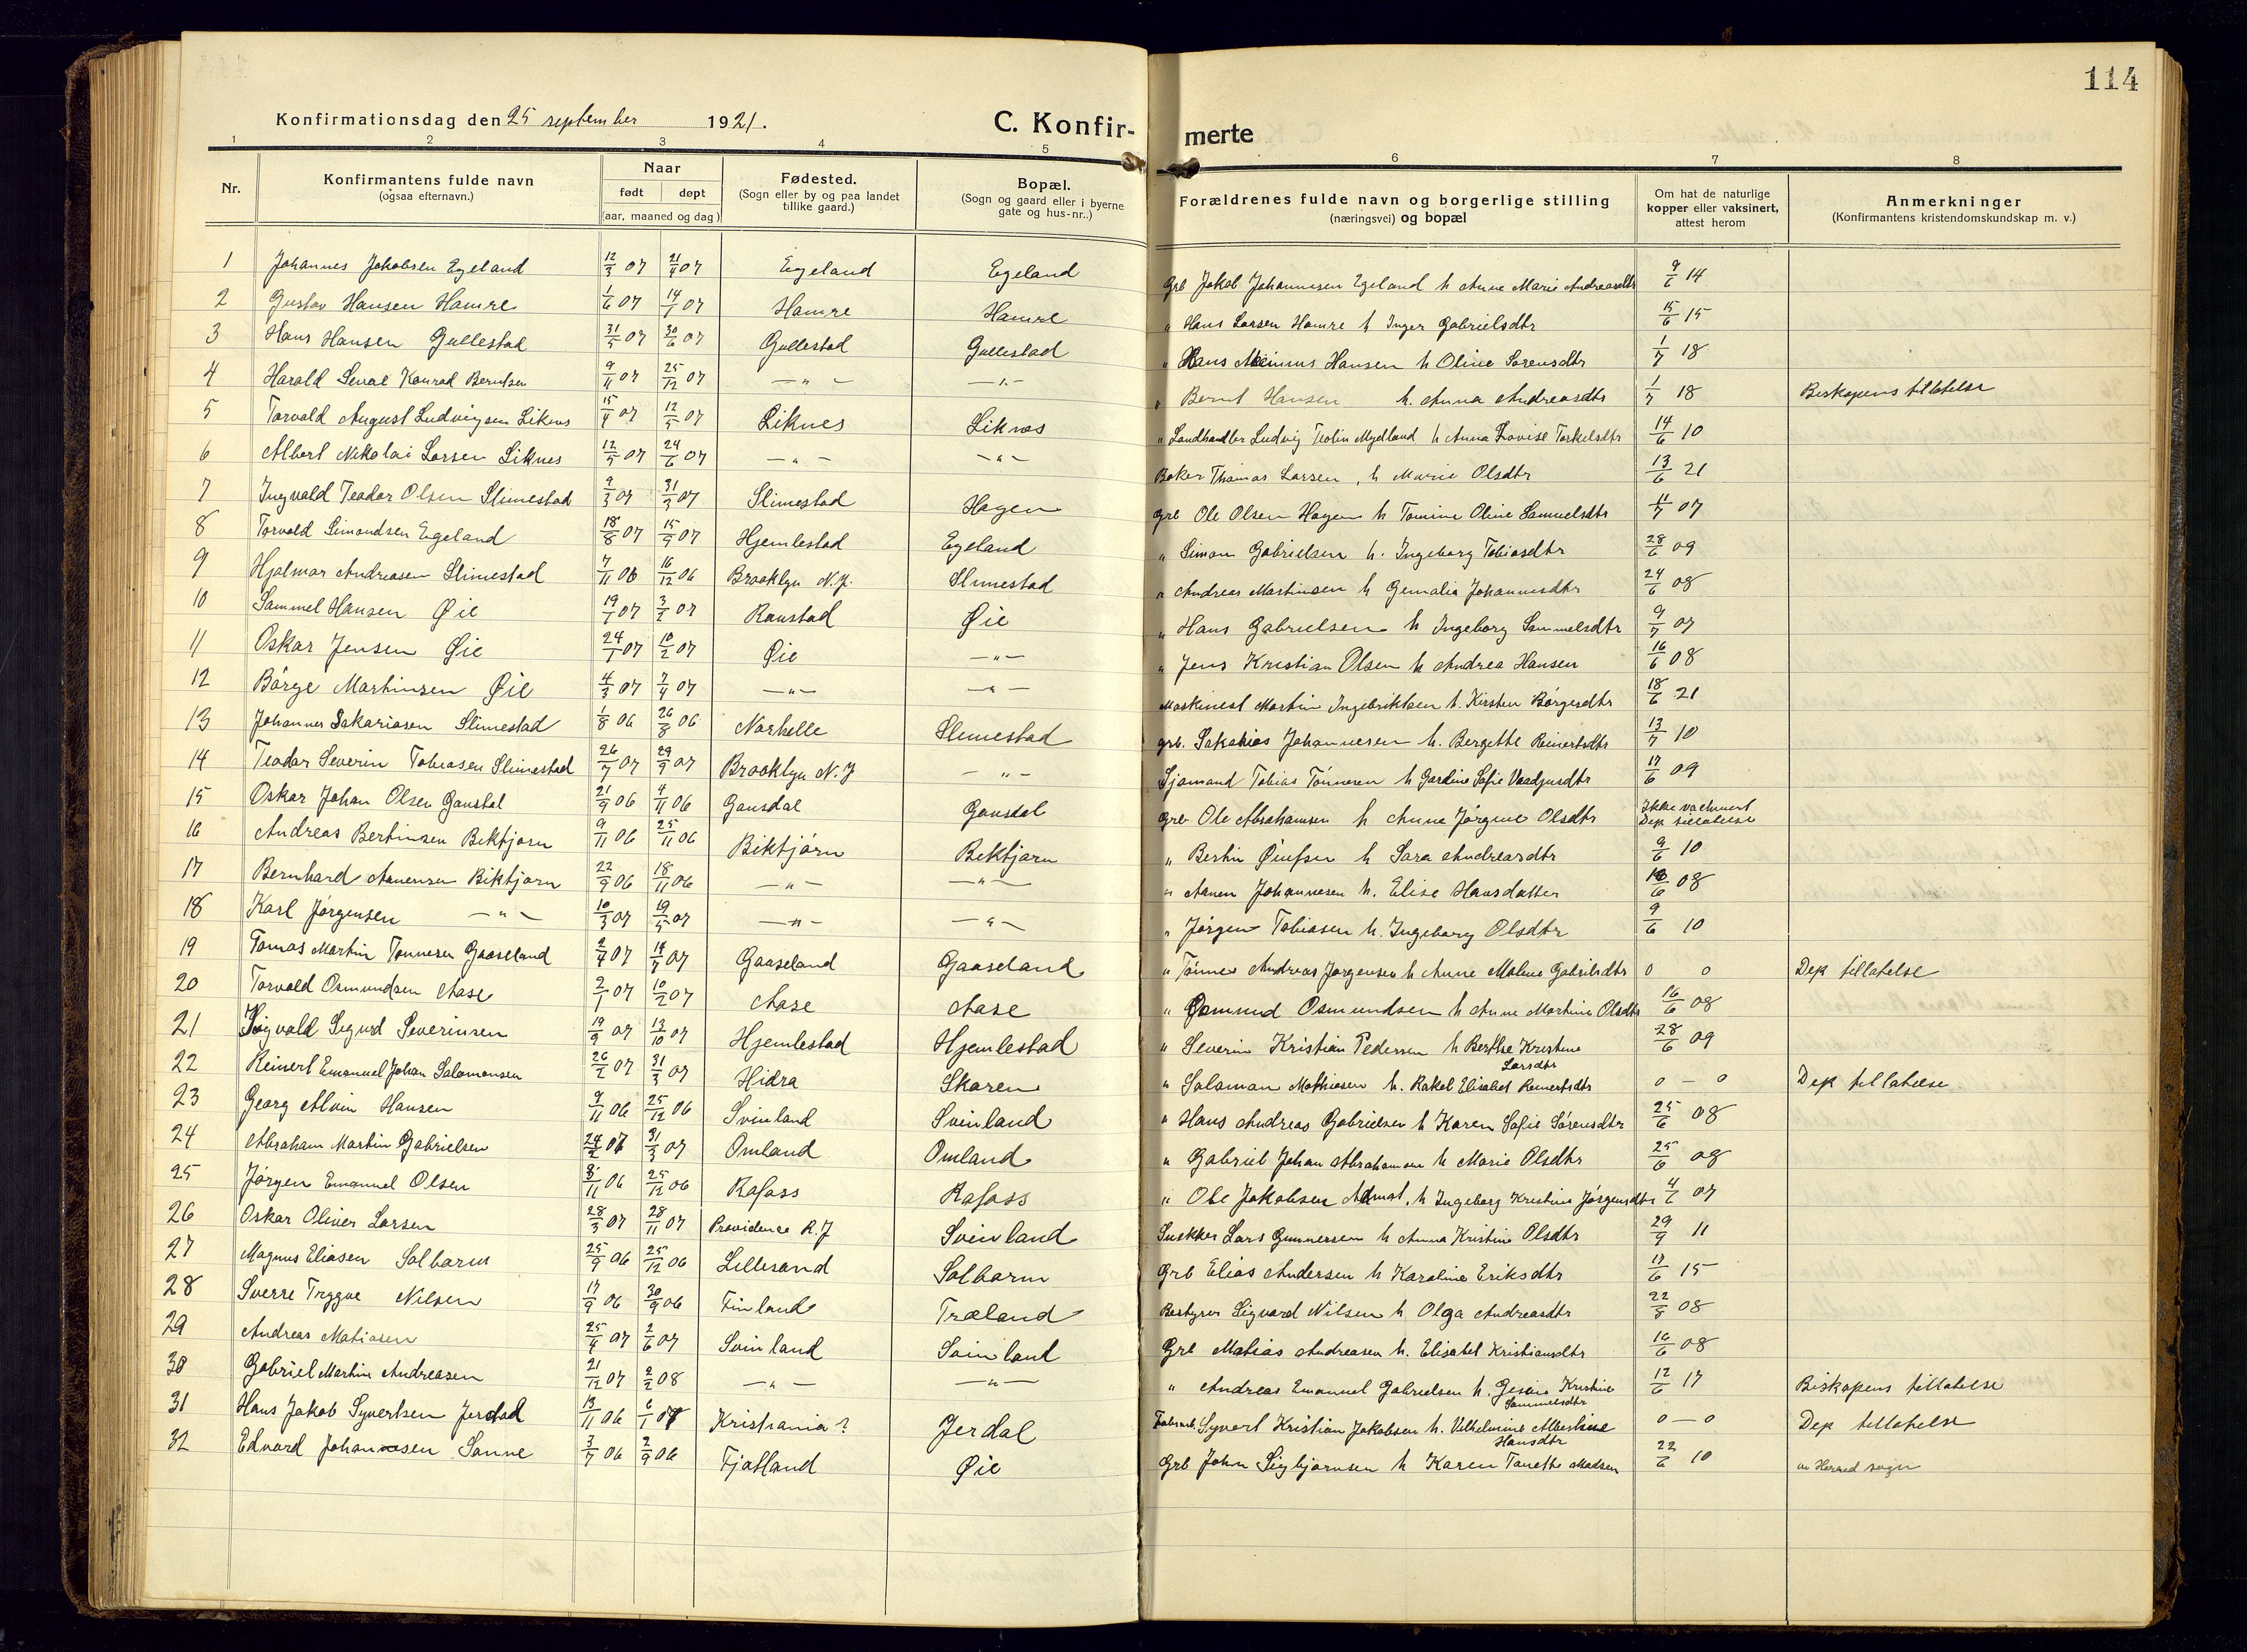 114
Konfirmationsdag den 25 september 1921.
C. Konfir-
merte
1 2 3 4 5 6 7 8
Nr.
Konfirmantens fulde navn
(ogsaa efternavn.)
Naar
født døpt
(aar, maaned og dag)
Fødested.
(Sogn eller by og paa landet
tillike gaard.)
Bopæl.
(Sogn og gaard eller i byerne
gate og hus-nr..)
Forældrenes fulde navn og borgerlige stilling
(næringsvei) og bopæl
Om hat de naturlige
kopper eller vaksinert,
attest herom
Anmerkninger
(Konfirmantens kristendomskundskap m. v.)
1 Johannes Jakobsen Egeland 12/3 07 21/4 07 Egeland Egeland Grb Jakob Johannesen Egeland h Anne Marie Andreasdtr 9/6 14
2 Gustav Hansen Hamre 1/6 07 14/7 07 Hamre Hamre " Hans Larsen Hamre h Inger Gabrielsdtr 15/6 15
3 Hans Hansen Gullestad 31/5 07 30/6 07 Gullestad Gullestad " Hans Meinius Hansen h Oline Sorensdtr 1/7 18
4 Harald Konrad Berntsen 9/11 07 25/12 07 — " — — " — " Bernt Hansen h. Anna Andreasdtr 1/7 18 Biskopens tillatelse
5 Torvald August Ludvigsen Liknes 15/4 07 12/5 07 Liknes Liknes " Landhandler Ludvig Teolin Mydland h Anna Lovise Torkelsdtr 14/6 10
6 Albert Nikolai Larsen Liknes 12/5 07 24/6 07 — " — — " — Baker Thomas Larsen, h Marie Olsdtr 13/6 21
7 Ingvald Teodor Olsen Slimestad 9/3 07 31/3 07 Slimestad Hagen Grb Ole Olsen Hagen h Tomine Oline Samuelsdtr 11/7 07
8 Torvald Simondsen Egeland 18/8 07 15/9 07 Hjemlestad Egeland " Simon Gabrielsen h. Ingeborg Tobiasdtr 28/6 09
9 Hjalmar Andreasen Slimestad 7/11 06 16/12 06 Brooklyn N.Y. Slimestad " Andreas Martinsen h Gemalia Johannesdtr 24/6 08
10 Sammel Hansen Øie 19/1 07 3/2 07 Raustad Øie " Hans Gabrielsen h Ingeborg Sammelsdtr 9/7 07
11 Oskar Jensen Øie 24/1 07 10/2 07 Øie — " — " Jens Kristian Olsen h Andrea Hansen 16/6 08
12 Børge Martinsen Øie 4/3 07 7/4 07 — " — — " — Maskinist Martin Ingebriktsen h. Kirsten Børgesdtr 18/6 21
13 Johannes Sakariasen Slimestad 1/8 06 26/8 06 Narhelle Slimestad grb. Sakarias Johannesen h. Bergette Reinertsdtr 13/7 10
14 Teodor Severin Tobiasen Slimestad 26/7 07 29/9 07 Brooklyn N.Y — " — Sjømand Tobias Tønnesen h Gardine Sofie 17/6 09
15 Oskar Johan Olsen Gausdal 21/9 06 4/11 06 Gausdal Gausdal Grb Ole Abrahamsen h Anna Jørgine Olsdtr Ikke vaccinert
Dep tillatelse
16 Andreas Bertinsen Biktjørn 9/11 06 25/11 06 Biktjørn Biktjørn " Bertin h Sara Andreasdtr 9/6 10
17 Bernhard Aanensen Biktjørn 22/9 06 18/11 06 — " — — " — " Aanen Johannesen h. Elise Hansdatter 16/6 08
18 Karl Jørgensen — " — 10/3 07 19/5 07 — " — — " — " Jørgen Tobiasen h. Ingeborg Olsdtr 9/6 10
19 Tomas Martin Tønnesen Gaaseland 2/4 07 14/7 07 Gaaseland Gaaseland " Tønnes Andreas Jørgensen h Anne Maline Gabrielsdtr 0 0 Dep tillatelse
20 Torvald Osmundsen Aase 2/1 07 10/2 07 Aase Aase " Osmund Osmundsen h Anne Martine Olsdtr 16/6 08
21 Sigvald Sigurd Severinsen 19/9 07 13/10 07 Hjemlestad Hjemlestad " Severin Kristian Pedersen h Berthe Kristine
Larsdtr 28/6 09
22 Reinert Emanuel Johan Salomonsen 26/2 07 31/3 07 Hidra Skaren " Salomon Mathiasen h. Rakel Elisabet Reinertsdtr 0 — 0 Dep tillatelse
23 Georg Alvin Hansen 9/11 06 25/12 06 Svinland Svinland " Hans Andreas Gabrielsen h Karen Sofie Sørensdtr 25/6 08
24 Abraham Martin Gabrielsen 24/2 07 31/3 07 Omland Omland " Gabriel Johan Abrahamsen h Marie Olsdtr 25/6 08
25 Jørgen Emanuel Olsen 8/11 06 25/12 06 Rafoss Rafoss " Ole Jakobsen h Ingeborg Kristine Jørgensdtr 4/6 07
26 Oskar Oliver Larsen 28/3 07 28/11 07 Providence R.J Svinland Snekker Lars Gunnersen h Anna Kristine Olsdtr 29/9 11
27 Magnus Eliasen Solbarm 25/9 06 25/12 06 Lillesand Solbarm Grb Elias Andersen h Karoline Eriksdtr 17/6 15
28 Sverre Tryggve Nilsen 17/9 06 30/9 06 Finland Træland Bestyrer Sigvard Nilsen h Olga Andreasdtr 22/8 08
29 Andreas Matiasen 25/4 07 2/6 07 Svinland Svinland Grb Matias Andreasen h. Elisabet Kristiansdtr 16/6 08
30 Gabriel Martin Andreasen 21/12 07 2/2 08 — " — — " — " Andreas Emanuel Gabrielsen h. Gesine Kristine
Sammelsdtr 12/6 17 Biskopens tillatelse
31 Hans Jakob Syvertsen Jerdal 13/11 06 6/1 07 Kristiania? Jerdal Fabrarb. Syvert Kristian Jakobsen h. Vilhelmine Albertine
Hansdtr 0 — 0 Dep tillatelse
32 Edvard Johansen Sanne 3/7 06 2/9 06 Fjotland Øie Grb Johan Sigbjørnsen h Karen Tanette Madsen 22/6 10 av Herred sogn